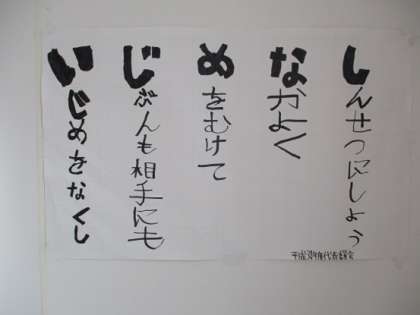 いじめをなくし
じぶんも相手にも
めをむけて
なかよく
しんせつにしょう
平成30年度代表委員会